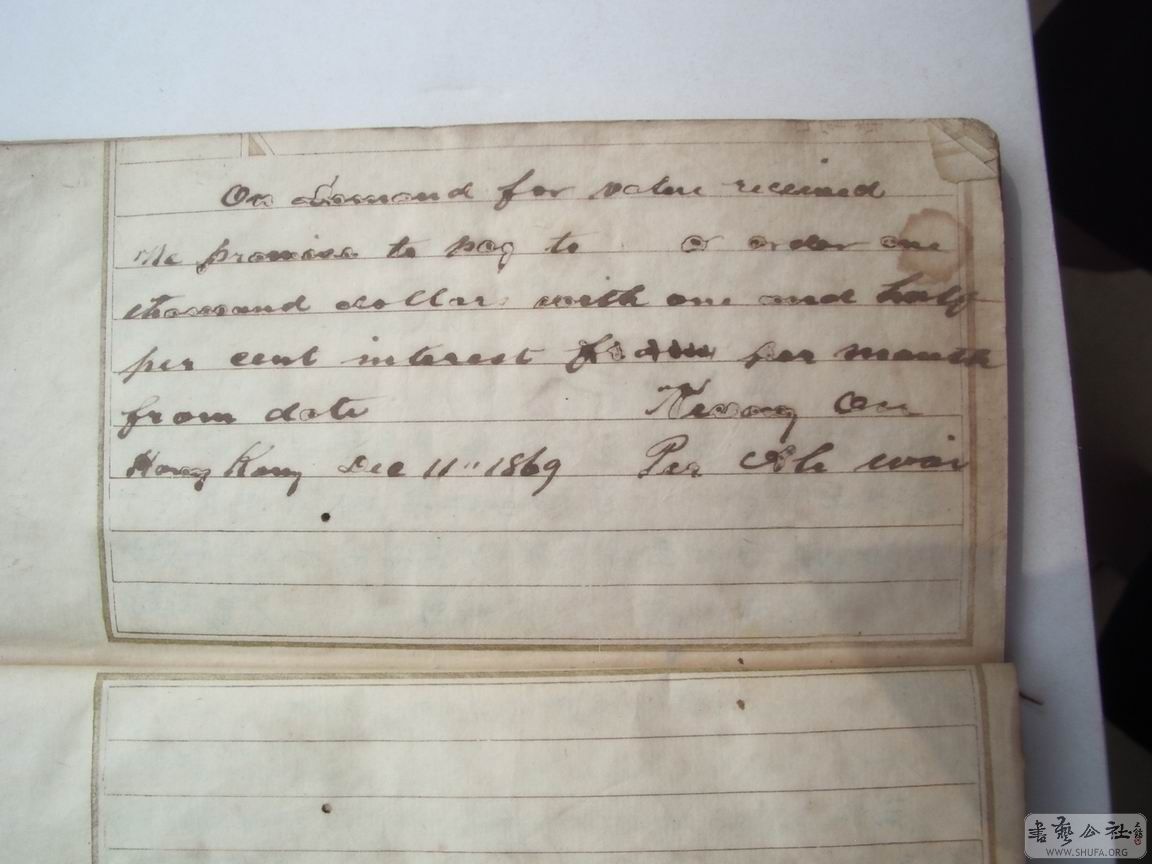 On demand for value received
We promise to pay to or order one
thousand dollars with one and half
per cent interest per month
from date
Hong Kong Dec 11" 1869 Per Ah wai
書藝公社
WWW.SHUFA.ORG